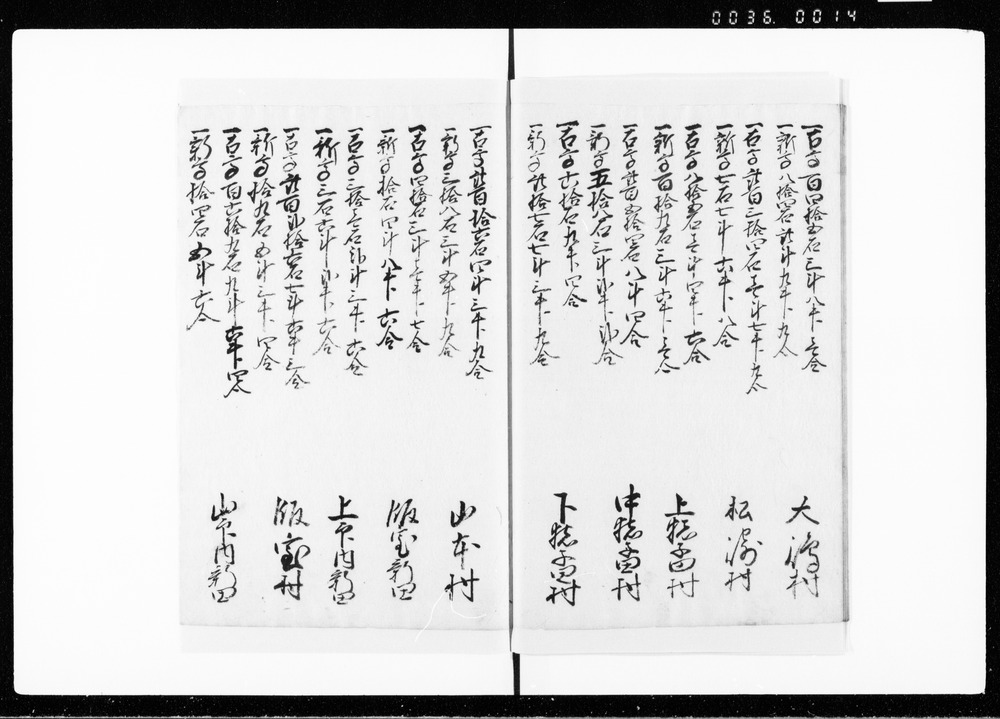 0036.0014
一古高百四拾五石三斗八升壱合
一新高八拾四石弐斗九升九合
大嶋村
一古高弐百三拾四石壱斗七升九合
一新高七石七斗六升八合
松㴜村
一古高八拾五石壱斗四升六合
一新高百拾九石三斗五升壱合
上猿田村
一古高弐百五拾四石八斗四合
一新高五拾八石三斗弐升弐合
中猿田村
一古高六拾石九升四合
一新高弐拾七石七斗三升九合
下猿田村
一古高弐百拾六石四斗三升九合
一新高三拾八石三斗五升九合
山本村
一古高四拾石三斗壱升七合
一新高拾石四斗八升六合
飯室新田
一古高三拾壱石弐斗三升六合
一新高三石六斗弐升六合
上戸内新田
一古高弐百弐拾六石七斗五升三合
一新高拾九石五斗三升四合
飯室村
一古高百六拾九石九斗五升四合
一新高拾四石五斗六合
山戸内新田